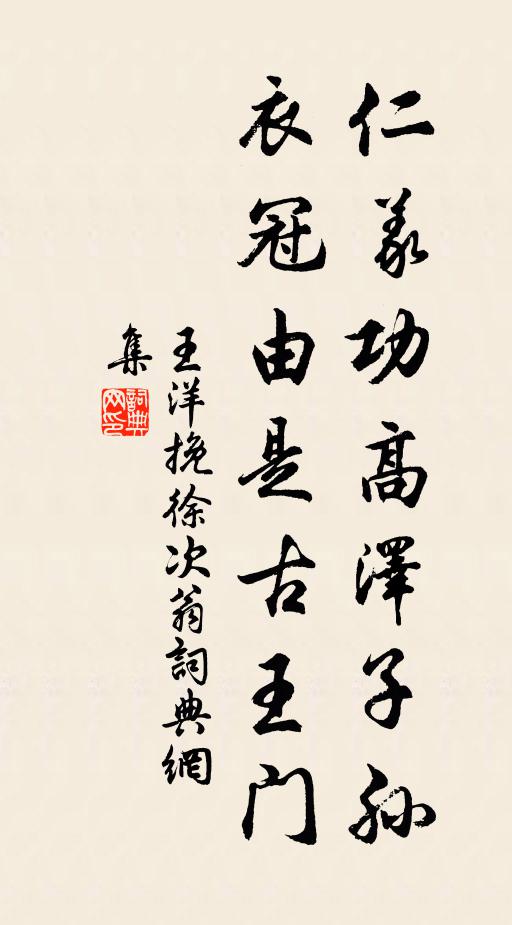 仁義功高澤子孫
衣冠由是古王門
王洋挽徐次翁詞典網
集
詞典
网印